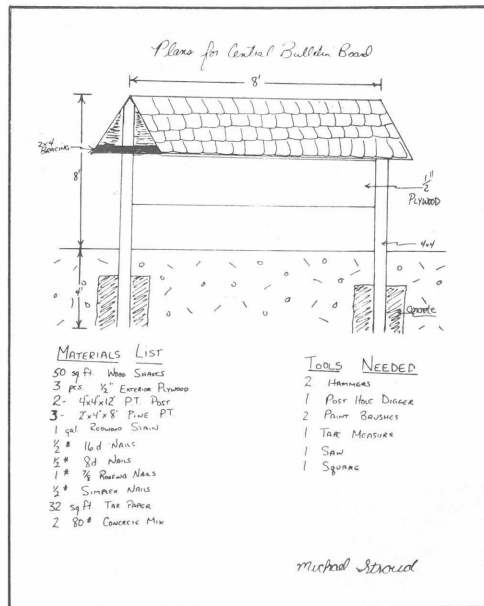 Plans for Central Bulletin Board
8'
2x4
BRACING
8'
1/2"
PLYWOOD
4x4
4'
Concrete
MATERIALS LIST
50 sq ft. WOOD SHAKES
3 pcs 1/2" EXTERIOR PLYWOOD
2- 4x4x12' P.T. POST
3- 2x4x8' PINE P.T.
1 gal REDWOOD STAIN
1/2 # 16d NAILS
1/2 # 8d NAILS
1 # 7/8 ROOFING NAILS
1/2 # SIMPLEX NAILS
32 sq.ft. TAR PAPER
2 80# CONCRETE MIX
TOOLS NEEDED
2 HAMMERS
1 POST HOLE DIGGER
2 PAINT BRUSHES
1 TAPE MEASURE
1 SAW
1 SQUARE
Michael Stroud